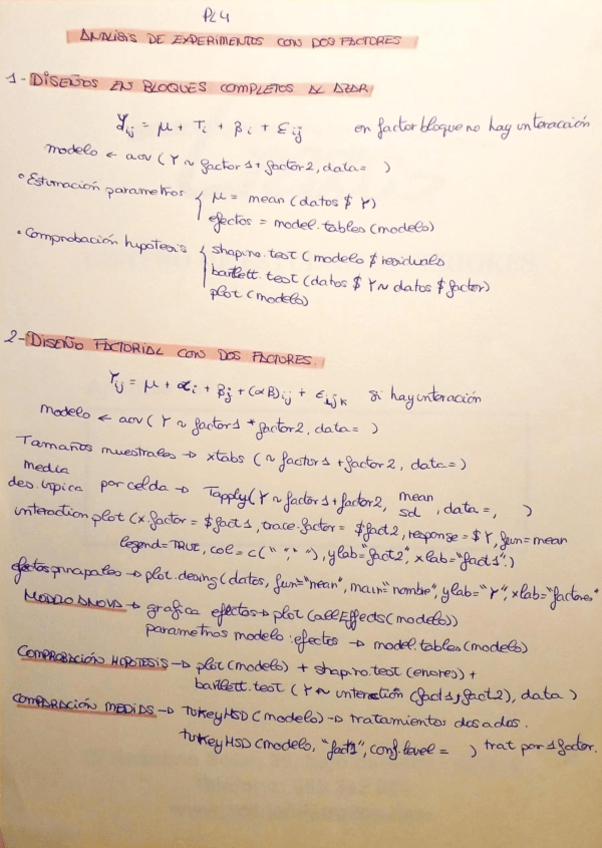 PL4
ANALISIS DE EXPERIMENTOS CON DOS FACTORES
1- DISEÑOS EN BLOQUES COMPLETOS AL AZAR
Yij = μ + Ti + βi + εij en factor bloque no hay interacción
modelo ← aov (Y ~ factor1 + factor2, data= )
• Estimación parametros { μ = mean (datos $ Y)
efectos = model.tables (modelo)
• Comprobación hipotesis { shapiro.test (modelo $ residuals
bartlett.test (datos $ Y ~ datos $ factor)
plot (modelo)
2- DISEÑO FACTORIAL CON DOS FACTORES.
Yij = μ + αi + βj + (αβ)ij + εijk si hay interación
modelo ← aov (Y ~ factor1 * factor2, data= )
Tamaños muestrales → xtabs (~ factor1 + factor2, data=)
media
des. tipica por celda → Tapply (Y ~ factor1 + factor2, mean sd, data=, )
interaction plot (x.factor = $fact1, trace.factor = $fact2, response = $Y, fun= mean
legend= TRUE, col= c(" "," "), ylab= "fact2", xlab= "fact1")
efectos principales → plot.desing (datos, fun= "mean", main= "nombre", ylab= "Y", xlab= "factores"
MODELO ANOVA → grafica efectos → plot (allEffects (modelo))
parametros modelo: efectos → model.tables (modelo)
COMPROBACIÓN HIPOTESIS → plot (modelo) + shapiro.test (errores) +
bartlett.test (Y ~ interaction (fact1, fact2), data )
COMPARACIÓN MEDIAS → TukeyHSD (modelo) → tratamientos dos a dos.
tukeyHSD (modelo, "fact1", conf.level = ) trat por 1 factor.